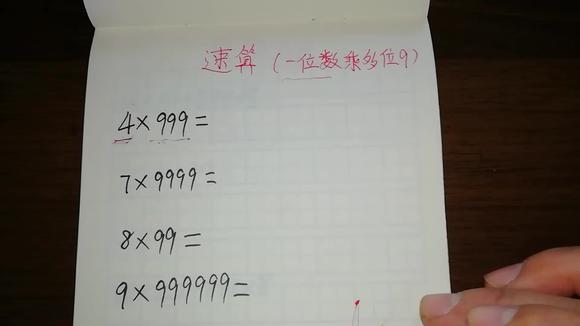 速算(一位数乘多位9)
4×999=
7×9999=
8×99=
9×999999=